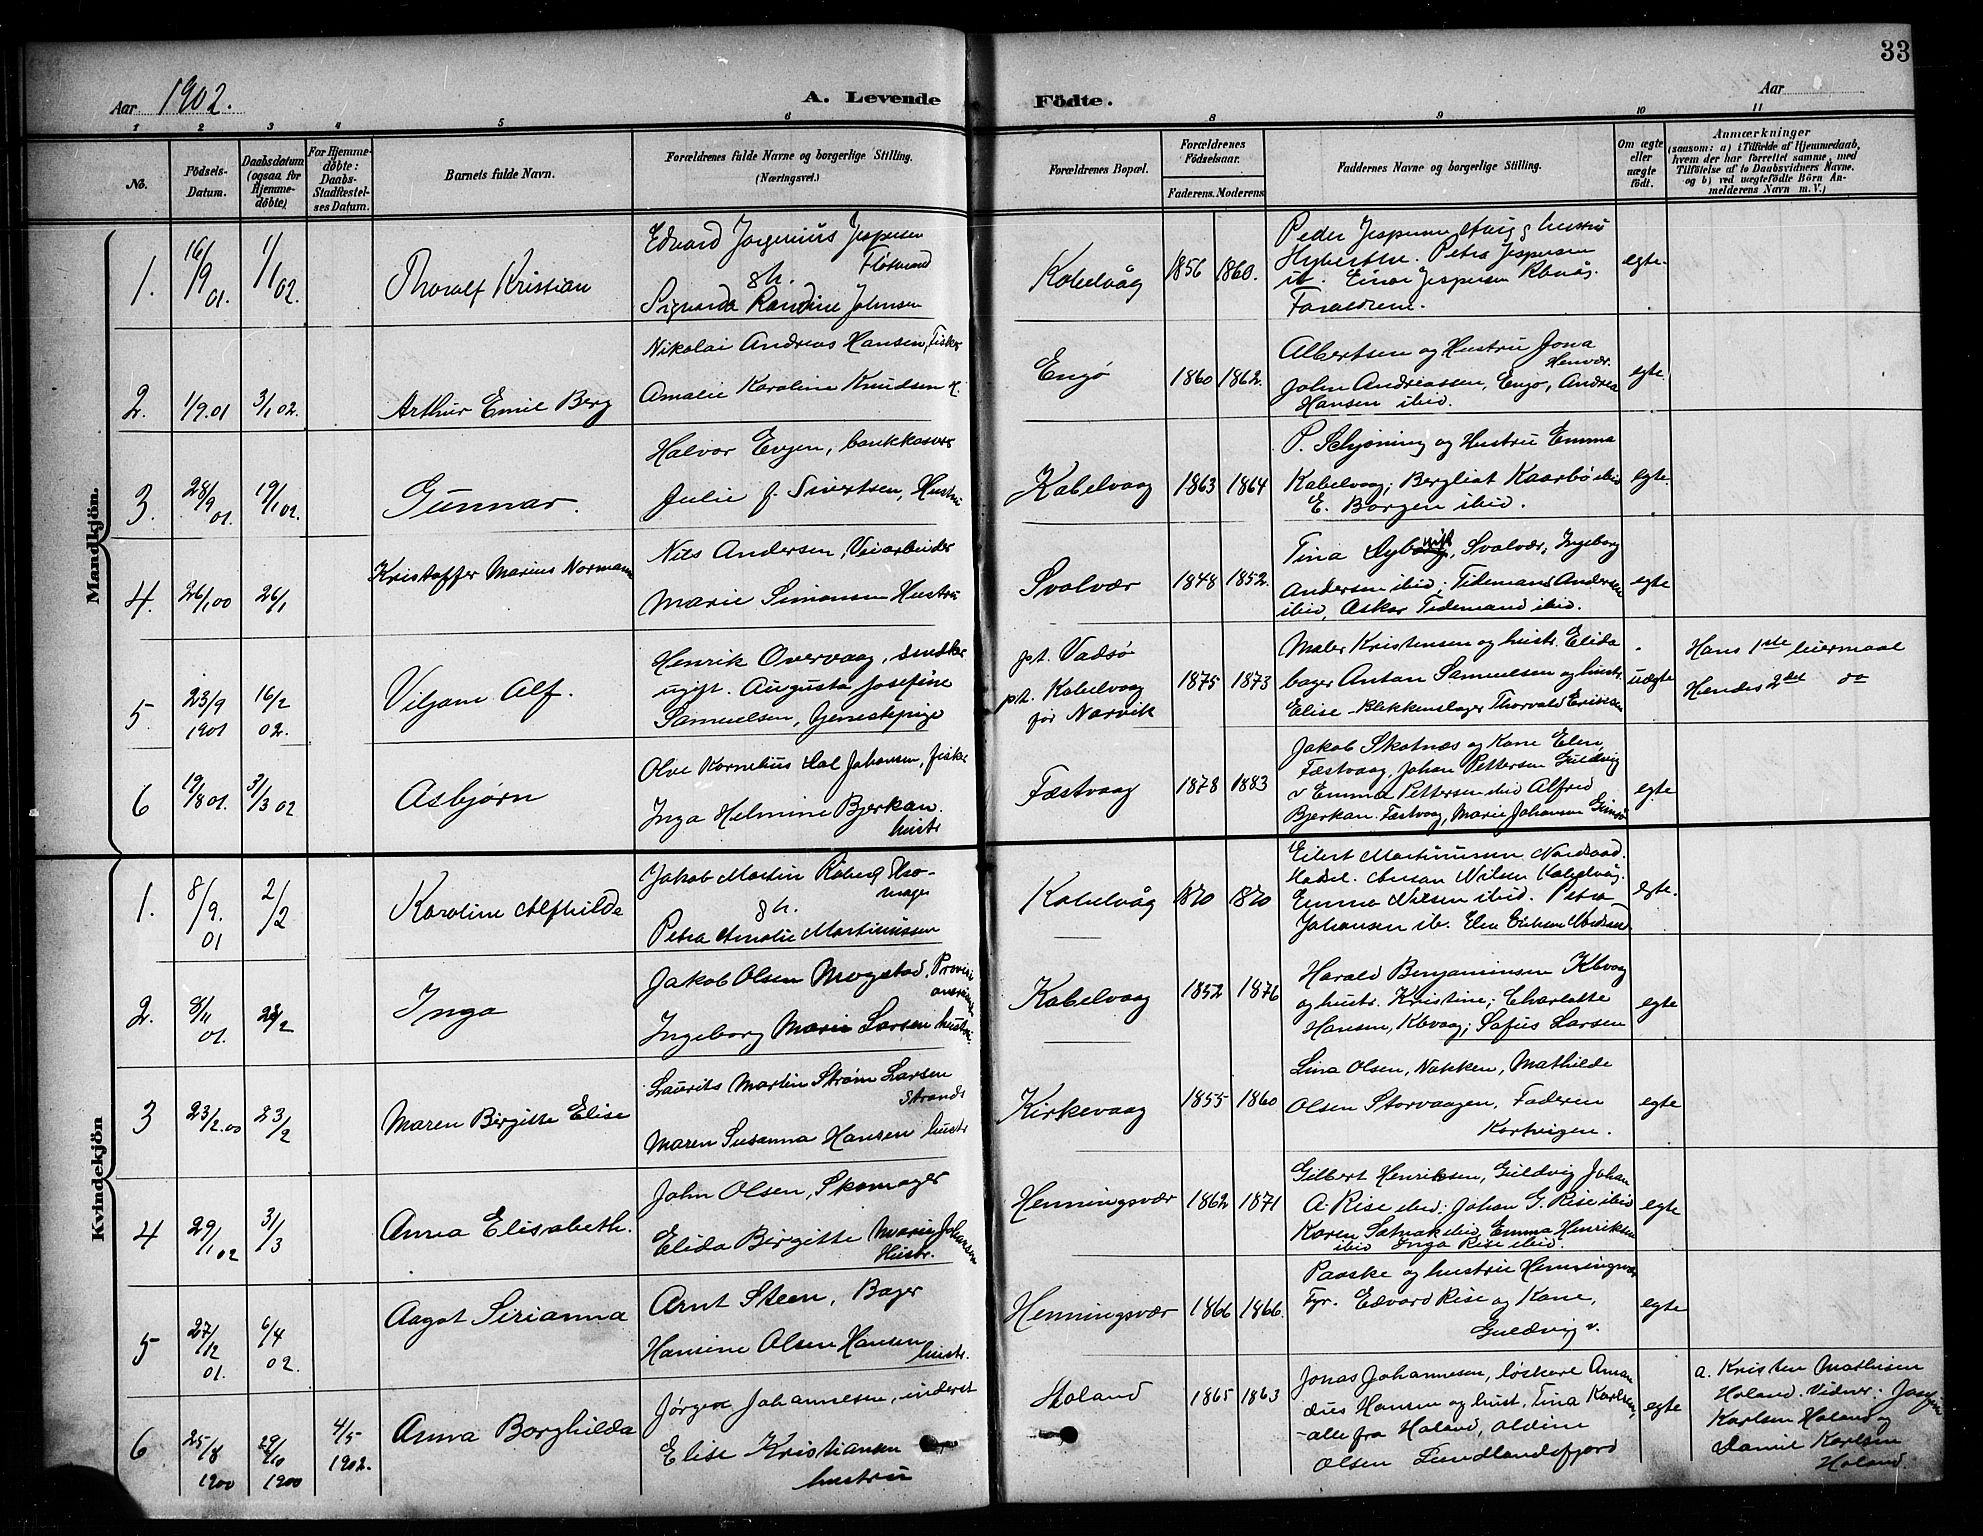 33
Aar 1902.
A. Levende Födte.
Aar
1 2 3 4 5 6 8 9 10 11
No.
Födsels-Datum.
Daabsdatum (ogsaa for Hjemme-døbte)
For Hjemme-døbte: Daabs-Stadfæstel-ses Datum.
Barnets fulde Navn.
Forældrenes fulde Navne og borgerlige Stilling. (Næringsvei.)
Forældrenes Bopæl.
Forældrenes Födselsaar.
Faderens. Moderens.
Faddernes Navne og borgerlige Stilling.
Om ægte eller uægte født.
Anmærkninger
(saasom: a) i Tilfælde af Hjemmedaab, hvem der har forrettet samme, med Tilføielse af to Daabsvidners Navne. og b) ved uægtefødte Börn An-melderens Navn m. V.)
Mandkjön.
1. 16/9 01. 1/1 02. Thoralf Kristian
Edvard Jørginius Jespersen
gh.
Sigvarda Randine Johnsen
Kabelvåg 1856 1860.
Peder Jespersen hustru
Petra Jespersen
ib. Einar Jespersen Kbvåg.
Forældrene.
egte.
2. 1/9.01 3/1 02. Arthur Emil Berg
Nikolai Andreas Hansen, Fisker
Amalie Karoline Knudsen H.
Engø 1860 1862.
Albertsen og Hustru Jona
Henvær.
John Andreassen, Engø, Andrea
Hansen ibid.
egte.
3. 28/9 01. 19/1 02. Gunnar.
Halvor Evjen, bankkasser
Julie f. Sivertsen, Hustru
Kabelvaag 1863 1864
P. Schjøning og Hustru Emma
Kabelvaag; Bergliot Kaarbø ibid
E. Borgen ibid.
egte.
4. 26/1 00 26/1 Kristoffer Marius Normann
Nils Andersen, Veiarbeider
Marie Simonsen Hustru
Svolvær 1848 1852.
Tina Svolvær, Ingeborg
Andersen ibid; Tidemand Andersen
ibid, Askar Tidemand ibid.
egte
5. 23/9 1901 16/2 02. Viljam Alf.
Henrik Overvaag, snedker
ugift. Augusta Josefine
Samuelsen, tjenestepige
pt. Vadsø
pt. Kabelvaag
før Narvik
1875 1873
Maler Kristensen og hustr. Elida
bager Anton Samuelsen og hustr.
Elise - Blikkenslager Thorvald Eriksen
uægte
Hans 1ste leiermaal
Hendes 2det do
6 19/8 01. 31/3 02 Asbjørn
Olve Kornelius Johansen, fisker
Inga Helmine Bjerkan.
hustr
Fæstvaag 1878 1883
Jakob Skotnæs og Kone Elen,
Fæstvaag, Johan Pettersen Guldvig
v Emma Pettersen ibid Alfred
Bjerkan. Fæstvaag, Marie Johansen Gimsø
egte
Kvindekjön
1. 8/9. 01 2/2 Karoline Alfhilda
Jakob Martin Skomager
gh.
Petra Amalie Martinussen
Kabelvåg 1870 1870
Eilert Martinussen
Hadsel. Nilsen Kabelvåg.
Emma Nilsen ibid. Petra
Johansen ib. Eriksen
egte.
2. 8/11 01. 23/2 Inga
Jakob Olsen Mogstad,
Ingeborg Marie Larsen hustru.
Kabelvaag 1852 1876
Harald Benjaminsen Kbvaag
og hustr. Kristine; Charlotte
Hansen, Kbvaag; Sofus Larsen
egte
3 23/2.00 23/2 Maren Birgitte Elise
Laurits Martin Strøm Larsen
Strands
Maren Susanna Hansen hustr
Kirkevaag 1855 1860
Lina Olsen, Nakken, Mathilde
Olsen Storvaagen, Faderen
egte
4 29/1 02 31/3 Anna Elisabeth.
John Olsen, Skomager
Elida Birgitte Marie Johansen
Hustr.
Henningsvær 1862 1871
Gilbert Henriksen, Guldvig Johan
A. Rise ibid; Johan G. Rise ibid
Karen ibid, Emma Henriksen
ibid Inga Rise ibid.
egte
5 27/12 01. 6/4 02. Aagot Sirianna
Arnt Steen, Bager
Hansine Olsen Hansen
hustr.
Henningsvær 1866 1866.
Paaske og hustru Henningsvær
Fyr. Edvard Rise og Kone,
Guldvig v.
egte
6 25/8 1900 29/10 1900 4/5 1902. Anna Borghilda
Jørgen Johannesen, inderst
Elise Kristiansen
hustru
Holand 1865 1863
Jonas Johannesen, løskarl Aman
dus Hansen og hust, Tina Karlsen,
-alle fra Holand, Aldine
Olsen Sundlandsfjord
egte
a. Kristen Mathisen
Holand. Vidner:
Karlsen Holand og
Daniel Karlsen
Holand.